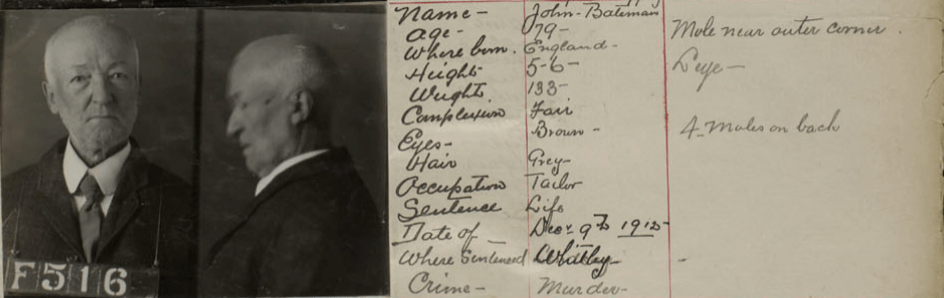 F516
Name- John-Bateman
Age- 79-
Where born. England-
Height 5-6-
Weight. 133-
Complexion Fair
Eyes- Brown-
Hair Grey-
Occupation Tailor
Sentence Life
Date of- Decr 9th 1912-
Where Sentenced Whitby-
Crime- Murder-
Mole near outer corner.
L eye-
4-Moles on back